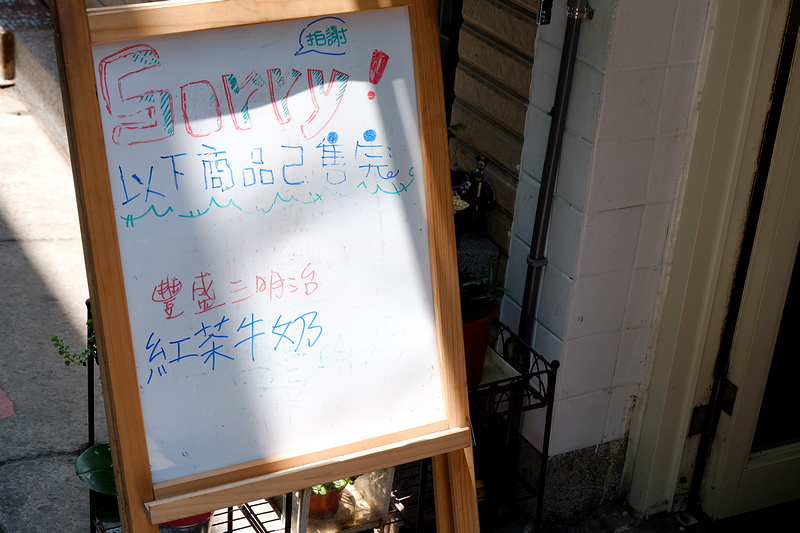 拍謝
Sorry!
以下商品已售完
豐盛三明治
紅茶牛奶